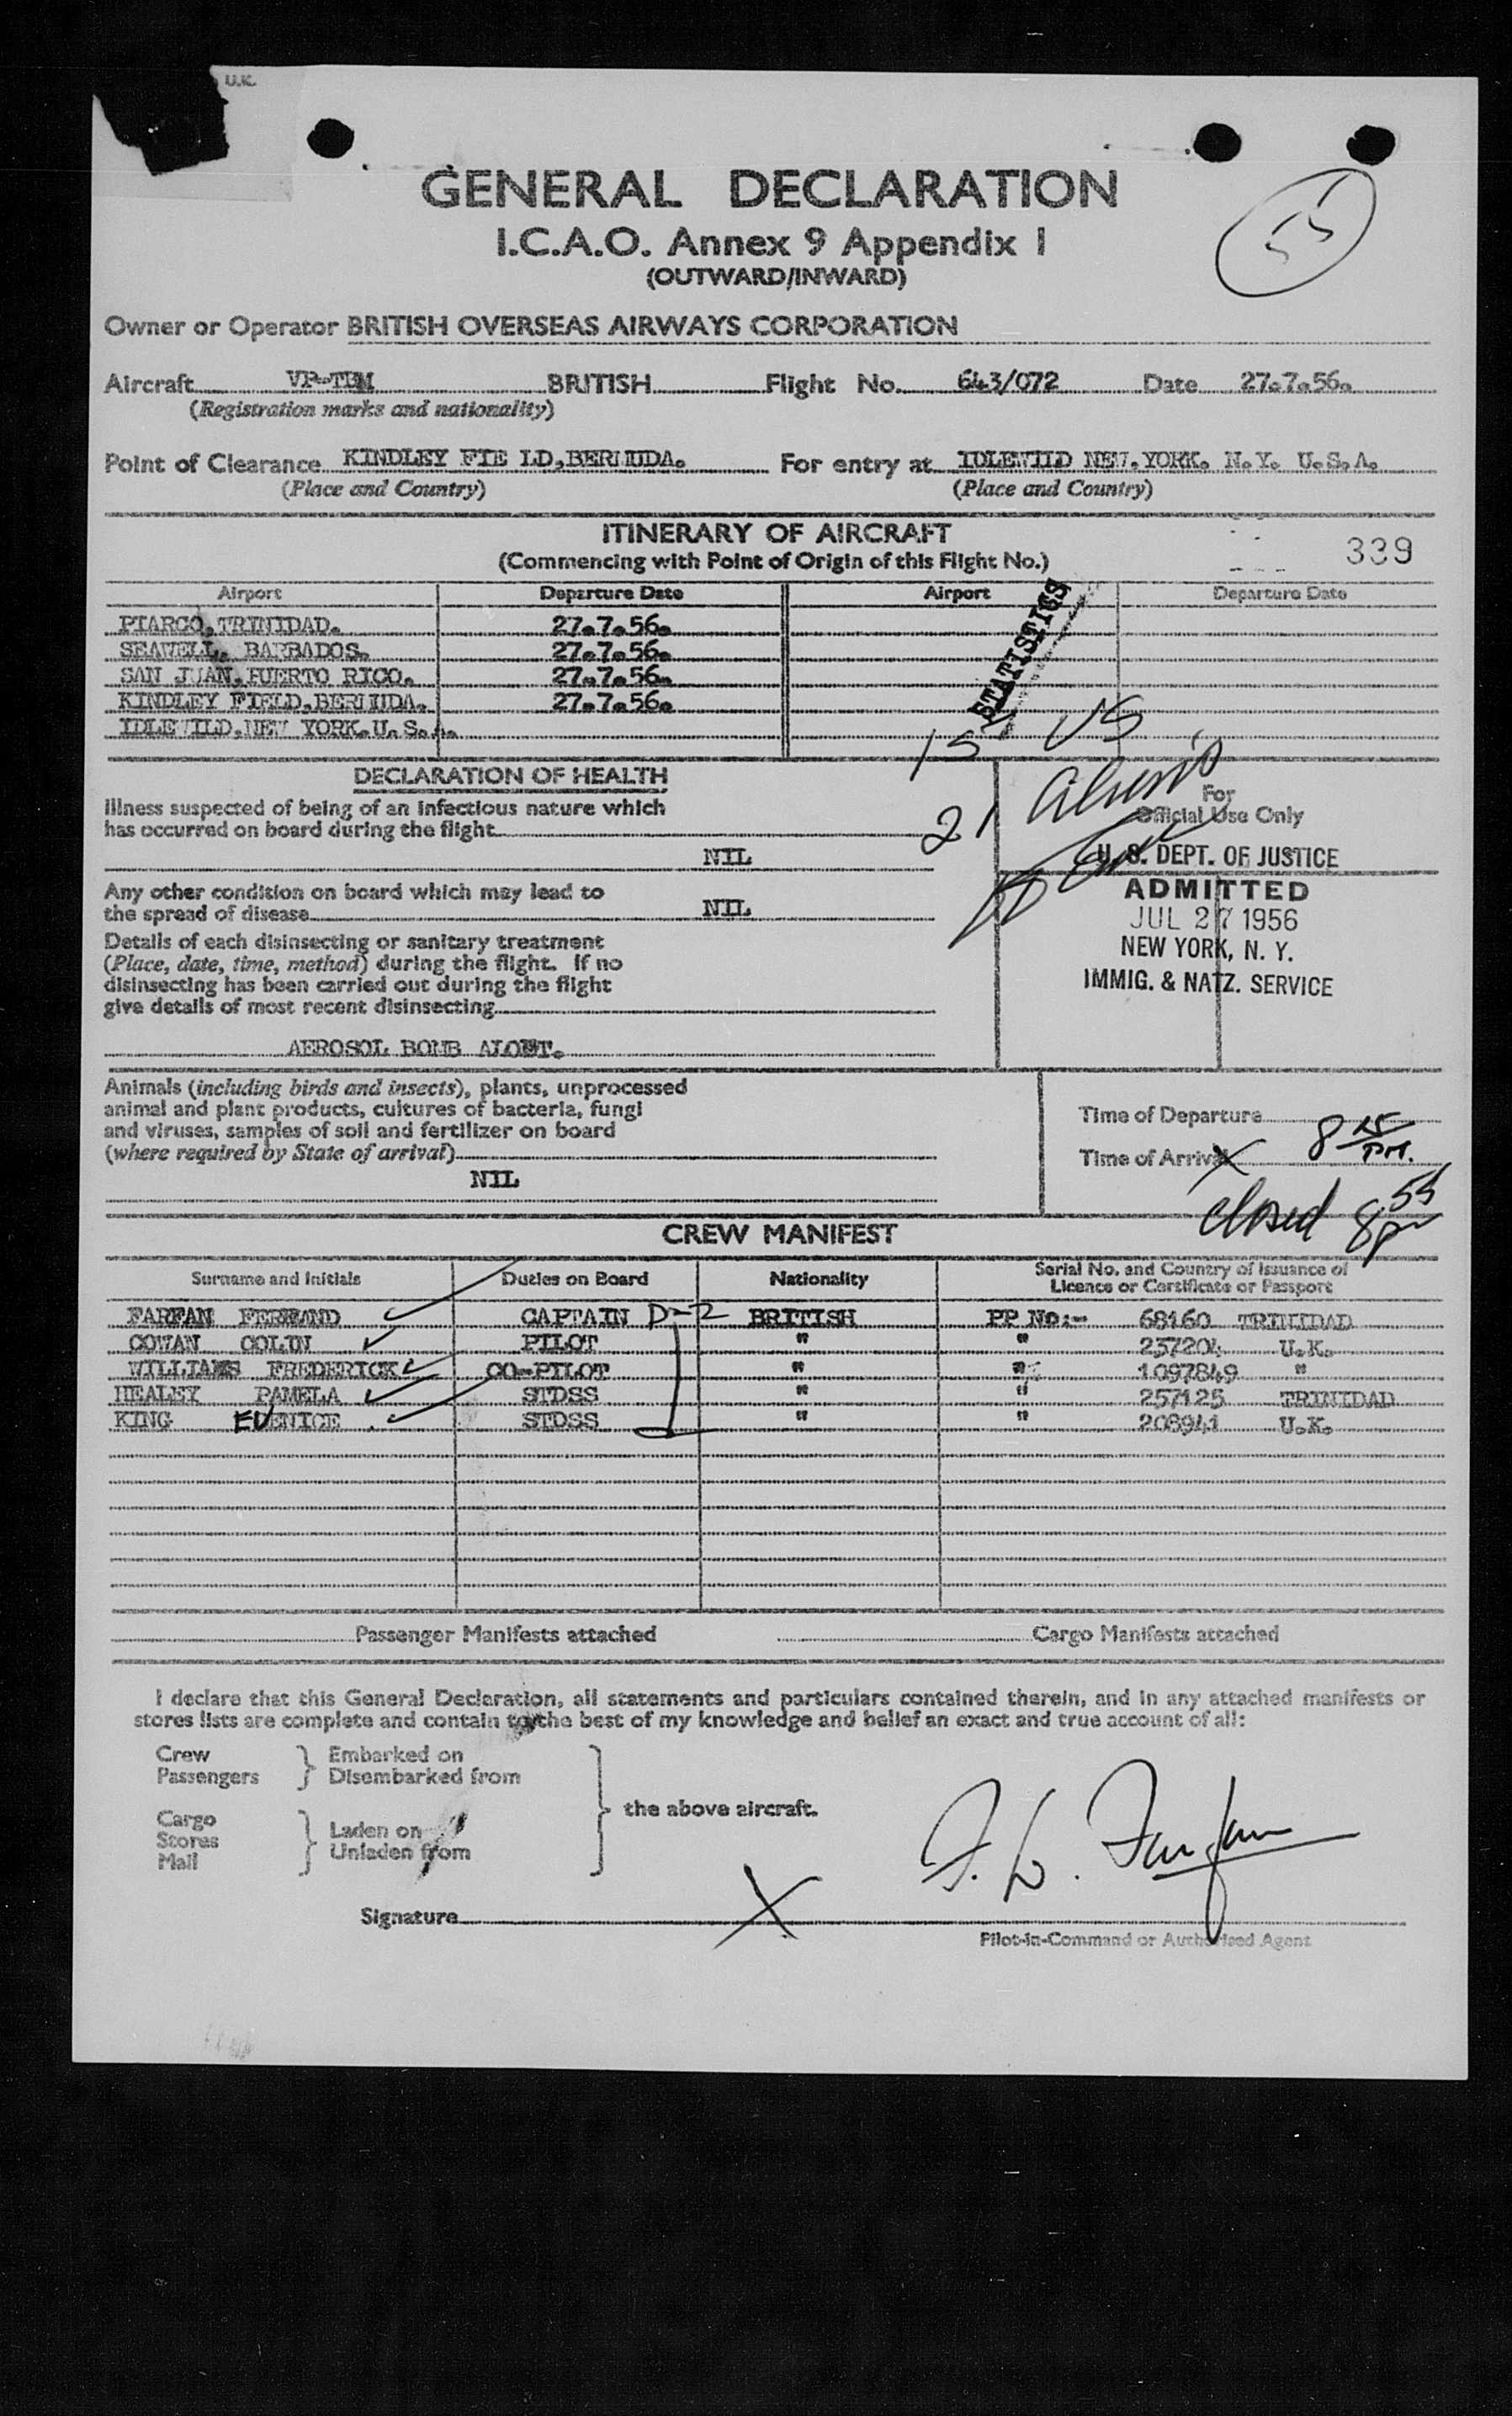 U.K.
GENERAL DECLARATION
I.C.A.O. Annex 9 Appendix I
(OUTWARD/INWARD)
55
Owner or Operator BRITISH OVERSEAS AIRWAYS CORPORATION
Aircraft VP-TBM BRITISH Flight No. 643/072 Date 27.7.56.
(Registration marks and nationality)
Point of Clearance KINDLEY FIE LD,BERMUDA. For entry at IDLEWILD NEW.YORK. N.Y. U.S.A.
(Place and Country) (Place and Country)
ITINERARY OF AIRCRAFT
(Commencing with Point of Origin of this Flight No.)
339
Airport Departure Date Airport Departure Date
PIARCO,TRINIDAD. 27.7.56.
SEAWELL, BARBADOS. 27.7.56.
SAN JUAN,PUERTO RICO. 27.7.56.
KINDLEY FIELD,BERMUDA. 27.7.56.
IDLEWILD,NEW YORK.U.S.A.
STATISTICS
15 US
21 Aliens
DECLARATION OF HEALTH
Illness suspected of being of an infectious nature which
has occurred on board during the flight
NIL
Any other condition on board which may lead to
the spread of disease NIL
Details of each disinsecting or sanitary treatment
(Place, date, time, method) during the flight. If no
disinsecting has been carried out during the flight
give details of most recent disinsecting
AEROSOL BOMB ALOFT.
For
Official Use Only
U. S. DEPT. OF JUSTICE
ADMITTED
JUL 27 1956
NEW YORK, N. Y.
IMMIG. & NATZ. SERVICE
Animals (including birds and insects), plants, unprocessed
animal and plant products, cultures of bacteria, fungi
and viruses, samples of soil and fertilizer on board
(where required by State of arrival)
NIL
Time of Departure
Time of Arrival X 8 15 PM.
closed 8 55 pm
CREW MANIFEST
Surname and Initials Duties on Board Nationality Serial No. and Country of Issuance of
Licence or Certificate or Passport
FARFAN FERNAND CAPTAIN D-2 BRITISH PP No:- 68160 TRINIDAD
COWAN COLIN PILOT " " 237204 U.K.
WILLIAMS FREDERICK CO-PILOT " " 1097849 "
HEALEY PAMELA STDSS " " 257125 TRINIDAD
KING EUENICE STDSS " " 208941 U.K.
Passenger Manifests attached Cargo Manifests attached
I declare that this General Declaration, all statements and particulars contained therein, and in any attached manifests or
stores lists are complete and contain to the best of my knowledge and belief an exact and true account of all:
Crew Embarked on
Passengers Disembarked from
the above aircraft.
Cargo Laden on
Stores Unladen from
Mail
F. L. Farfan
Signature X
Pilot-in-Command or Authorised Agent